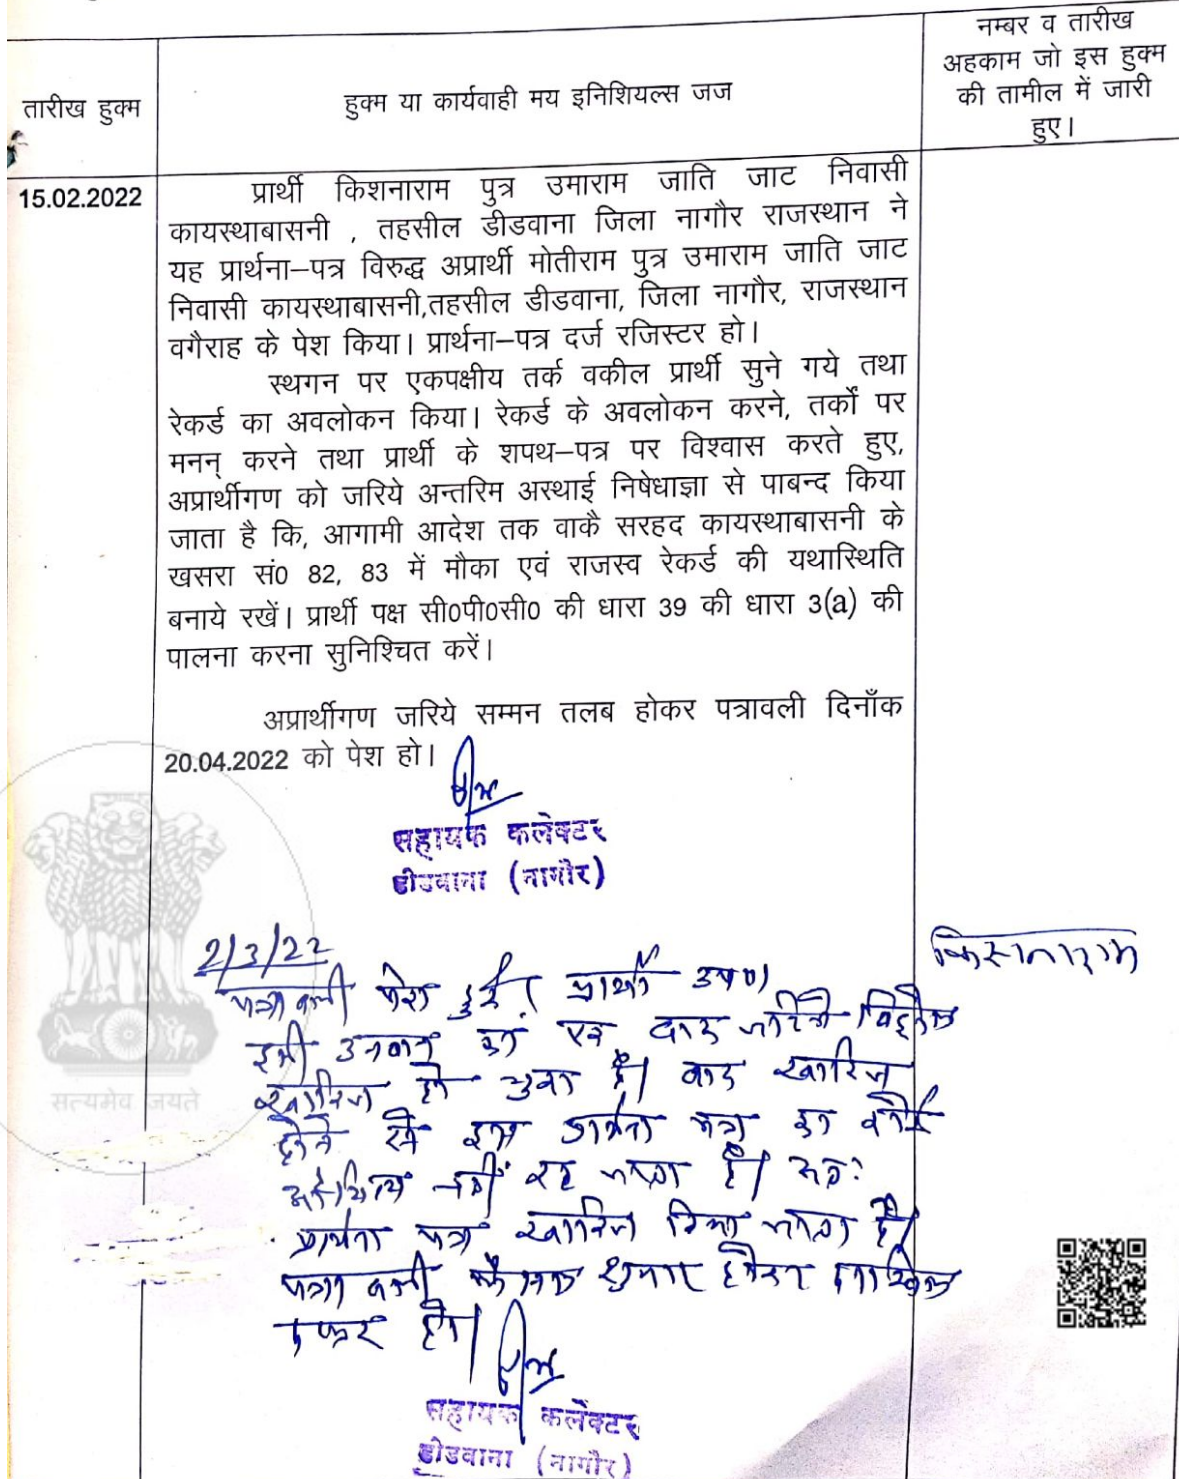 तारीख हुक्म
हुक्म या कार्यवाही मय इनिशियल्स जज
नम्बर व तारीख
अहकाम जो इस हुक्म
की तामील में जारी
हुए।
15.02.2022
प्रार्थी किशनाराम पुत्र उमाराम जाति जाट निवासी
कायस्थाबासनी , तहसील डीडवाना जिला नागौर राजस्थान ने
यह प्रार्थना–पत्र विरुद्ध अप्रार्थी मोतीराम पुत्र उमाराम जाति जाट
निवासी कायस्थाबासनी,तहसील डीडवाना, जिला नागौर, राजस्थान
वगैराह के पेश किया। प्रार्थना–पत्र दर्ज रजिस्टर हो।
स्थगन पर एकपक्षीय तर्क वकील प्रार्थी सुने गये तथा
रेकर्ड का अवलोकन किया। रेकर्ड के अवलोकन करने, तर्को पर
मनन् करने तथा प्रार्थी के शपथ–पत्र पर विश्वास करते हुए,
अप्रार्थीगण को जरिये अन्तरिम अस्थाई निषेधाज्ञा से पाबन्द किया
जाता है कि, आगामी आदेश तक वाकै सरहद कायस्थाबासनी के
खसरा सं0 82, 83 में मौका एवं राजस्व रेकर्ड की यथास्थिति
बनाये रखें। प्रार्थी पक्ष सी0पी0सी0 की धारा 39 की धारा 3(a) की
पालना करना सुनिश्चित करें।
अप्रार्थीगण जरिये सम्मन तलब होकर पत्रावली दिनाँक
20.04.2022 को पेश हो।
सहायक कलेक्टर
डीडवाना (नागौर)
2/3/22
पत्रावली पेश हुई। प्रार्थी उप0।
किस्नाराम
इसी उनवान का एक वाद
खारिज हो चुका है। वाद खारिज
होने से इस प्रार्थना पत्र का कोई
औचित्य नहीं रह जाता है। अतः
प्रार्थना पत्र खारिज किया जाता है।
पत्रावली फैसल शुमार होकर दाखिल
दफ्तर हो।
सहायक कलेक्टर
डीडवाना (नागौर)
सत्यमेव जयते